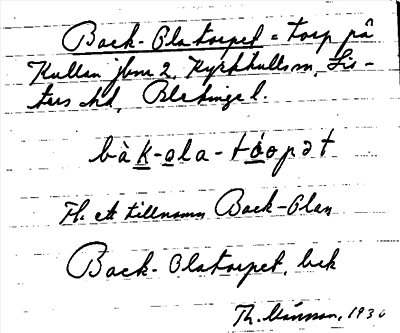 Back-Olatorpet = torp på
Kullan jbnr 2, Kyrkhults sn, Lis-
ters hd, Blekinge l.
bàk-ola-tòopət
Th. ett tillnamn Back-Olan
Back-Olatorpet, bek
Th. 1930